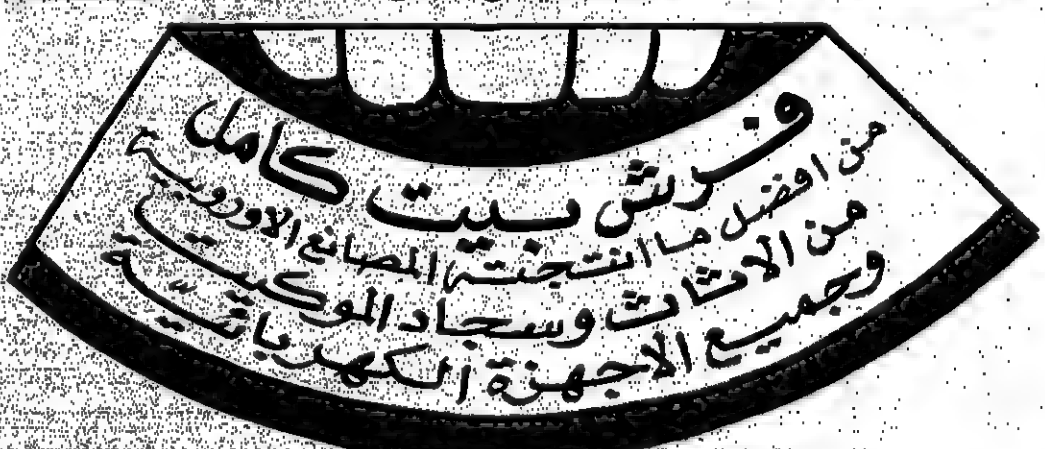 فرش بيت كامل
من افضل ما انتجته المصانع الاوروبية
من الاثاث وسجاد الموكيت
وجميع الاجهزة الكهربائية